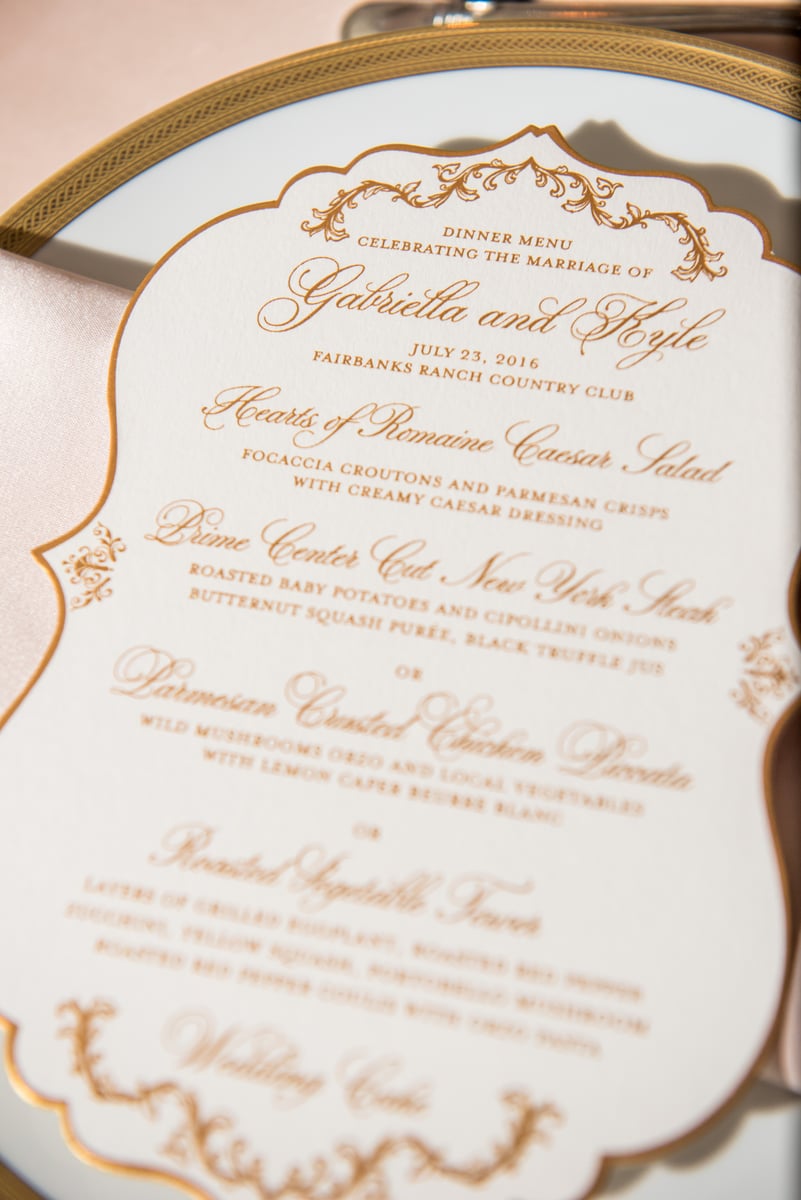 DINNER MENU
CELEBRATING THE MARRIAGE OF
Gabriella and Kyle
JULY 23, 2016
FAIRBANKS RANCH COUNTRY CLUB
Hearts of Romaine Caesar Salad
FOCACCIA CROUTONS AND PARMESAN CRISPS
WITH CREAMY CAESAR DRESSING
Prime Center Cut New York Steak
ROASTED BABY POTATOES AND CIPOLLINI ONIONS
BUTTERNUT SQUASH PURÉE, BLACK TRUFFLE JUS
OR
Parmesan Crusted Chicken Piccata
WILD MUSHROOMS ORZO AND LOCAL VEGETABLES
WITH LEMON CAPER BEURRE BLANC
OR
Roasted Vegetable Tower
LAYERS OF GRILLED EGGPLANT, ROASTED RED PEPPER
ZUCCHINI, YELLOW SQUASH, PORTOBELLO MUSHROOM
ROASTED RED PEPPER COULIS WITH ORZO PASTA
Wedding Cake